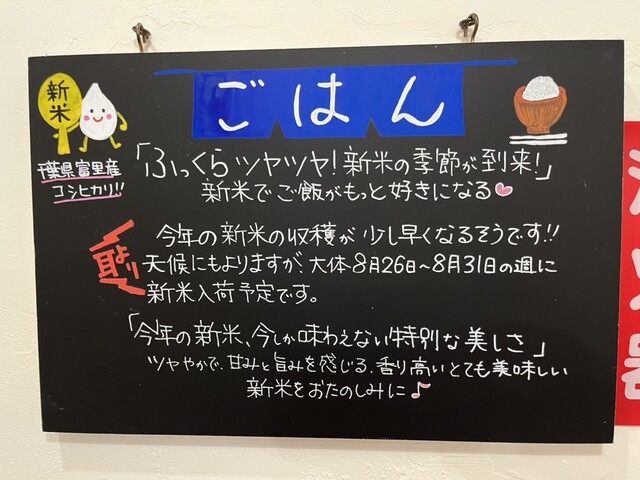 ごはん
新米
千葉県富里産
コシヒカリ!!
「ふっくらツヤツヤ!新米の季節が到来!」
新米でご飯がもっと好きになる♥
今年の新米の収穫が少し早くなるそうです!!
天候にもよりますが、大体8月26日~8月31日の週に
新米入荷予定です。
「今年の新米、今しか味わえない特別な美しさ」
ツヤやかで、甘みと旨みを感じる、香り高いとても美味しい
新米をおたのしみに♪